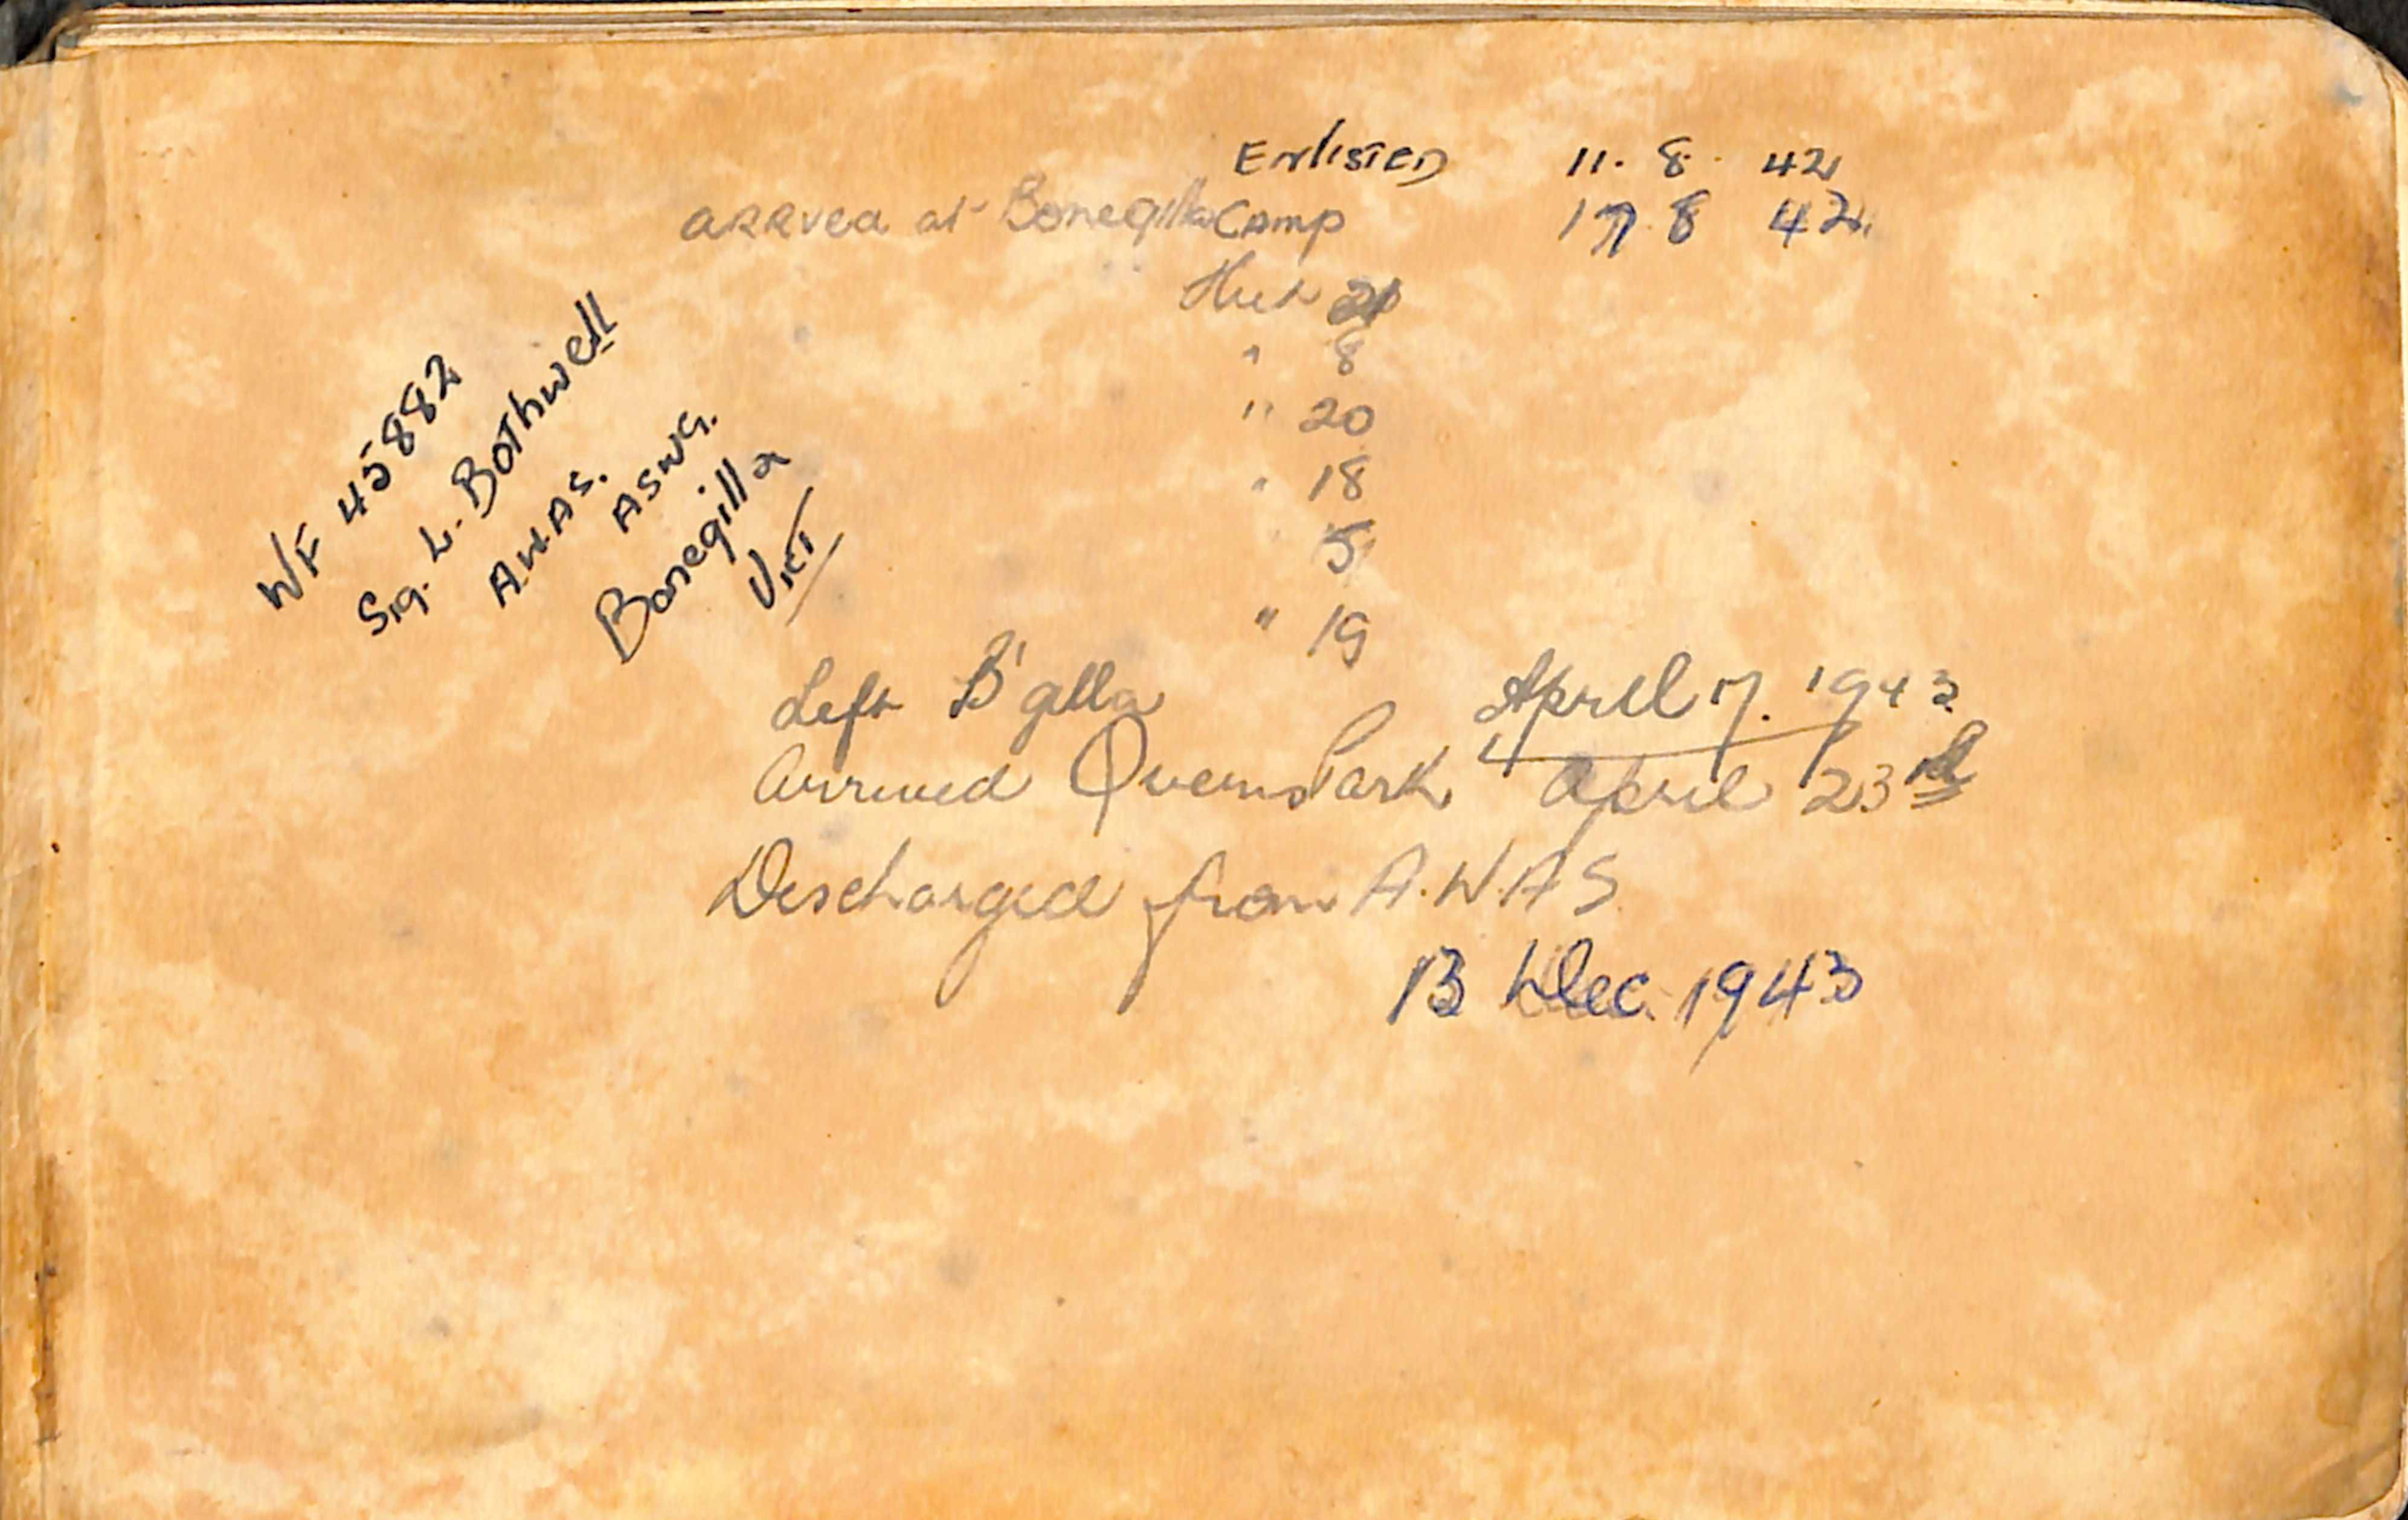 Enlisted 11. 8. 42
arrved at Bonegilla Camp 17. 8 42
Hut 21
" 8
" 20
" 18
" 5
" 19
WF 45882
Sig. L. Bothwell
A.W.A.S.
ASWG.
Bonegilla
Vict
Left B'gilla April 17. 1943
Arrived Queens Park April 23rd
Discharged from A.W.A.S
13 Dec. 1943